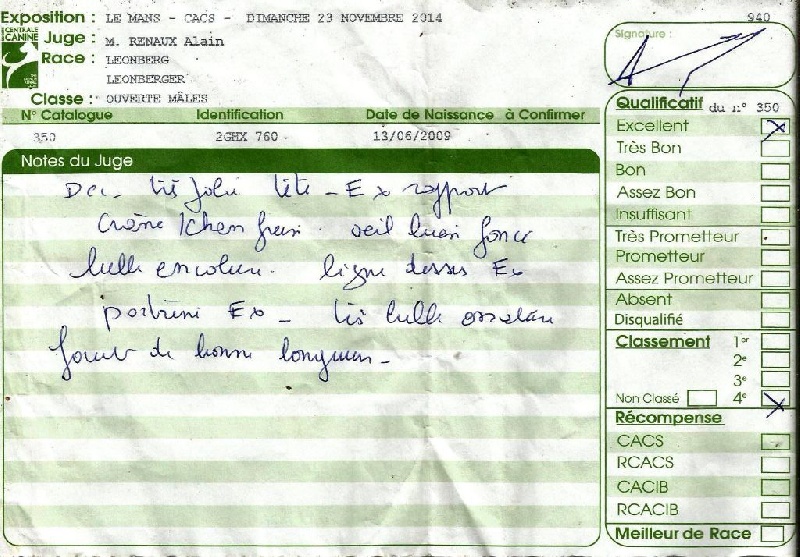 Exposition : LE MANS - CACS - DIMANCHE 23 NOVEMBRE 2014
940
CENTRALE CANINE
Juge : M. RENAUX Alain
Race : LEONBERG
LEONBERGER
Classe : OUVERTE MÂLES
N° Catalogue Identification Date de Naissance à Confirmer
350 2GHX 760 13/06/2009
Notes du Juge
très jolie tête - Ex rapport
Crâne / chanfrein. oeil bien foncé
belle encolure. ligne dessus Ex
poitrine Ex - très belle ossature
fouet de bonne longueur -
Signature :
Qualificatif du n° 350
Excellent
Très Bon
Bon
Assez Bon
Insuffisant
Très Prometteur
Prometteur
Assez Prometteur
Absent
Disqualifié
Classement 1er
2e
3e
Non Classé 4e
Récompense
CACS
RCACS
CACIB
RCACIB
Meilleur de Race